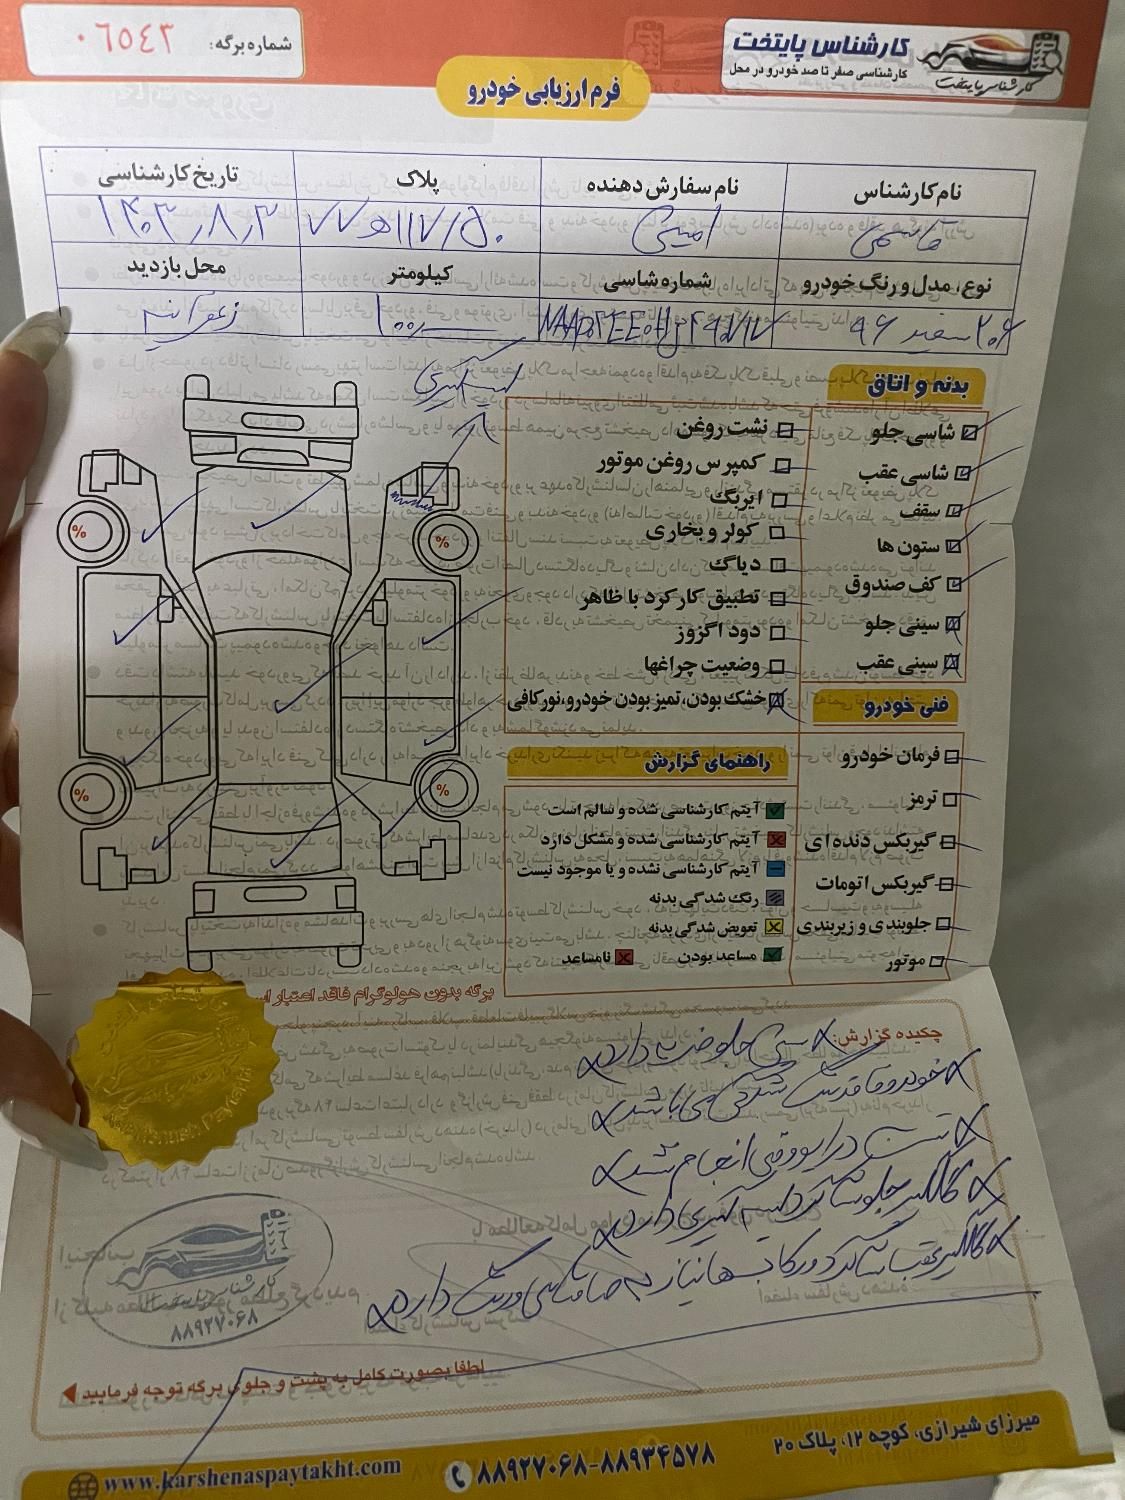 شماره برگه: ۰۶۵۴۳
کارشناس پایتخت
کارشناسی صفر تا صد خودرو در محل
کارشناس پایتخت
فرم ارزیابی خودرو
نام کارشناس
نام سفارش دهنده
پلاک
تاریخ کارشناسی
قاسمی
امینی
۷۷ ه ۱۱۷/۵۰
۱۴۰۳٫۸٫۳
نوع، مدل و رنگ خودرو
شماره شاسی
کیلومتر
محل بازدید
۲۰۶ سفید ۹۶
۱۰۰٫۰۰۰
زعفرانیه
لیسه گیری
بدنه و اتاق
شاسی جلو
شاسی عقب
سقف
ستون ها
کف صندوق
سینی جلو
سینی عقب
نشت روغن
کمپرس روغن موتور
ایربگ
کولر و بخاری
دیاگ
تطبیق کارکرد با ظاهر
دود اگزوز
وضعیت چراغها
خشک بودن، تمیز بودن خودرو، نور کافی
فنی خودرو
فرمان خودرو
ترمز
گیربکس دنده ای
گیربکس اتومات
جلوبندی و زیربندی
موتور
راهنمای گزارش
آیتم کارشناسی شده و سالم است
آیتم کارشناسی شده و مشکل دارد
آیتم کارشناسی نشده و یا موجود نیست
رنگ شدگی بدنه
تعویض شدگی بدنه
مساعد بودن
نامساعد
% % % %
برگه بدون هولوگرام فاقد اعتبار است
چکیده گزارش:
سینی جلو ضربه دارد
خودرو فاقد رنگ شدگی می باشد
تست در ایووقی انجام شد
گلگیر جلو شاگرد لیسه گیری دارد
گلگیر عقب شاگرد و رکاب ها نیاز به صافکاری و رنگ دارد
کارشناس پایتخت
۸۸۹۲۷۰۶۸
لطفا بصورت کامل به پشت و جلوی برگه توجه فرمایید
www.karshenaspaytakht.com
۸۸۹۲۷۰۶۸-۸۸۹۳۴۵۷۸
میرزای شیرازی، کوچه ۱۲، پلاک ۲۰